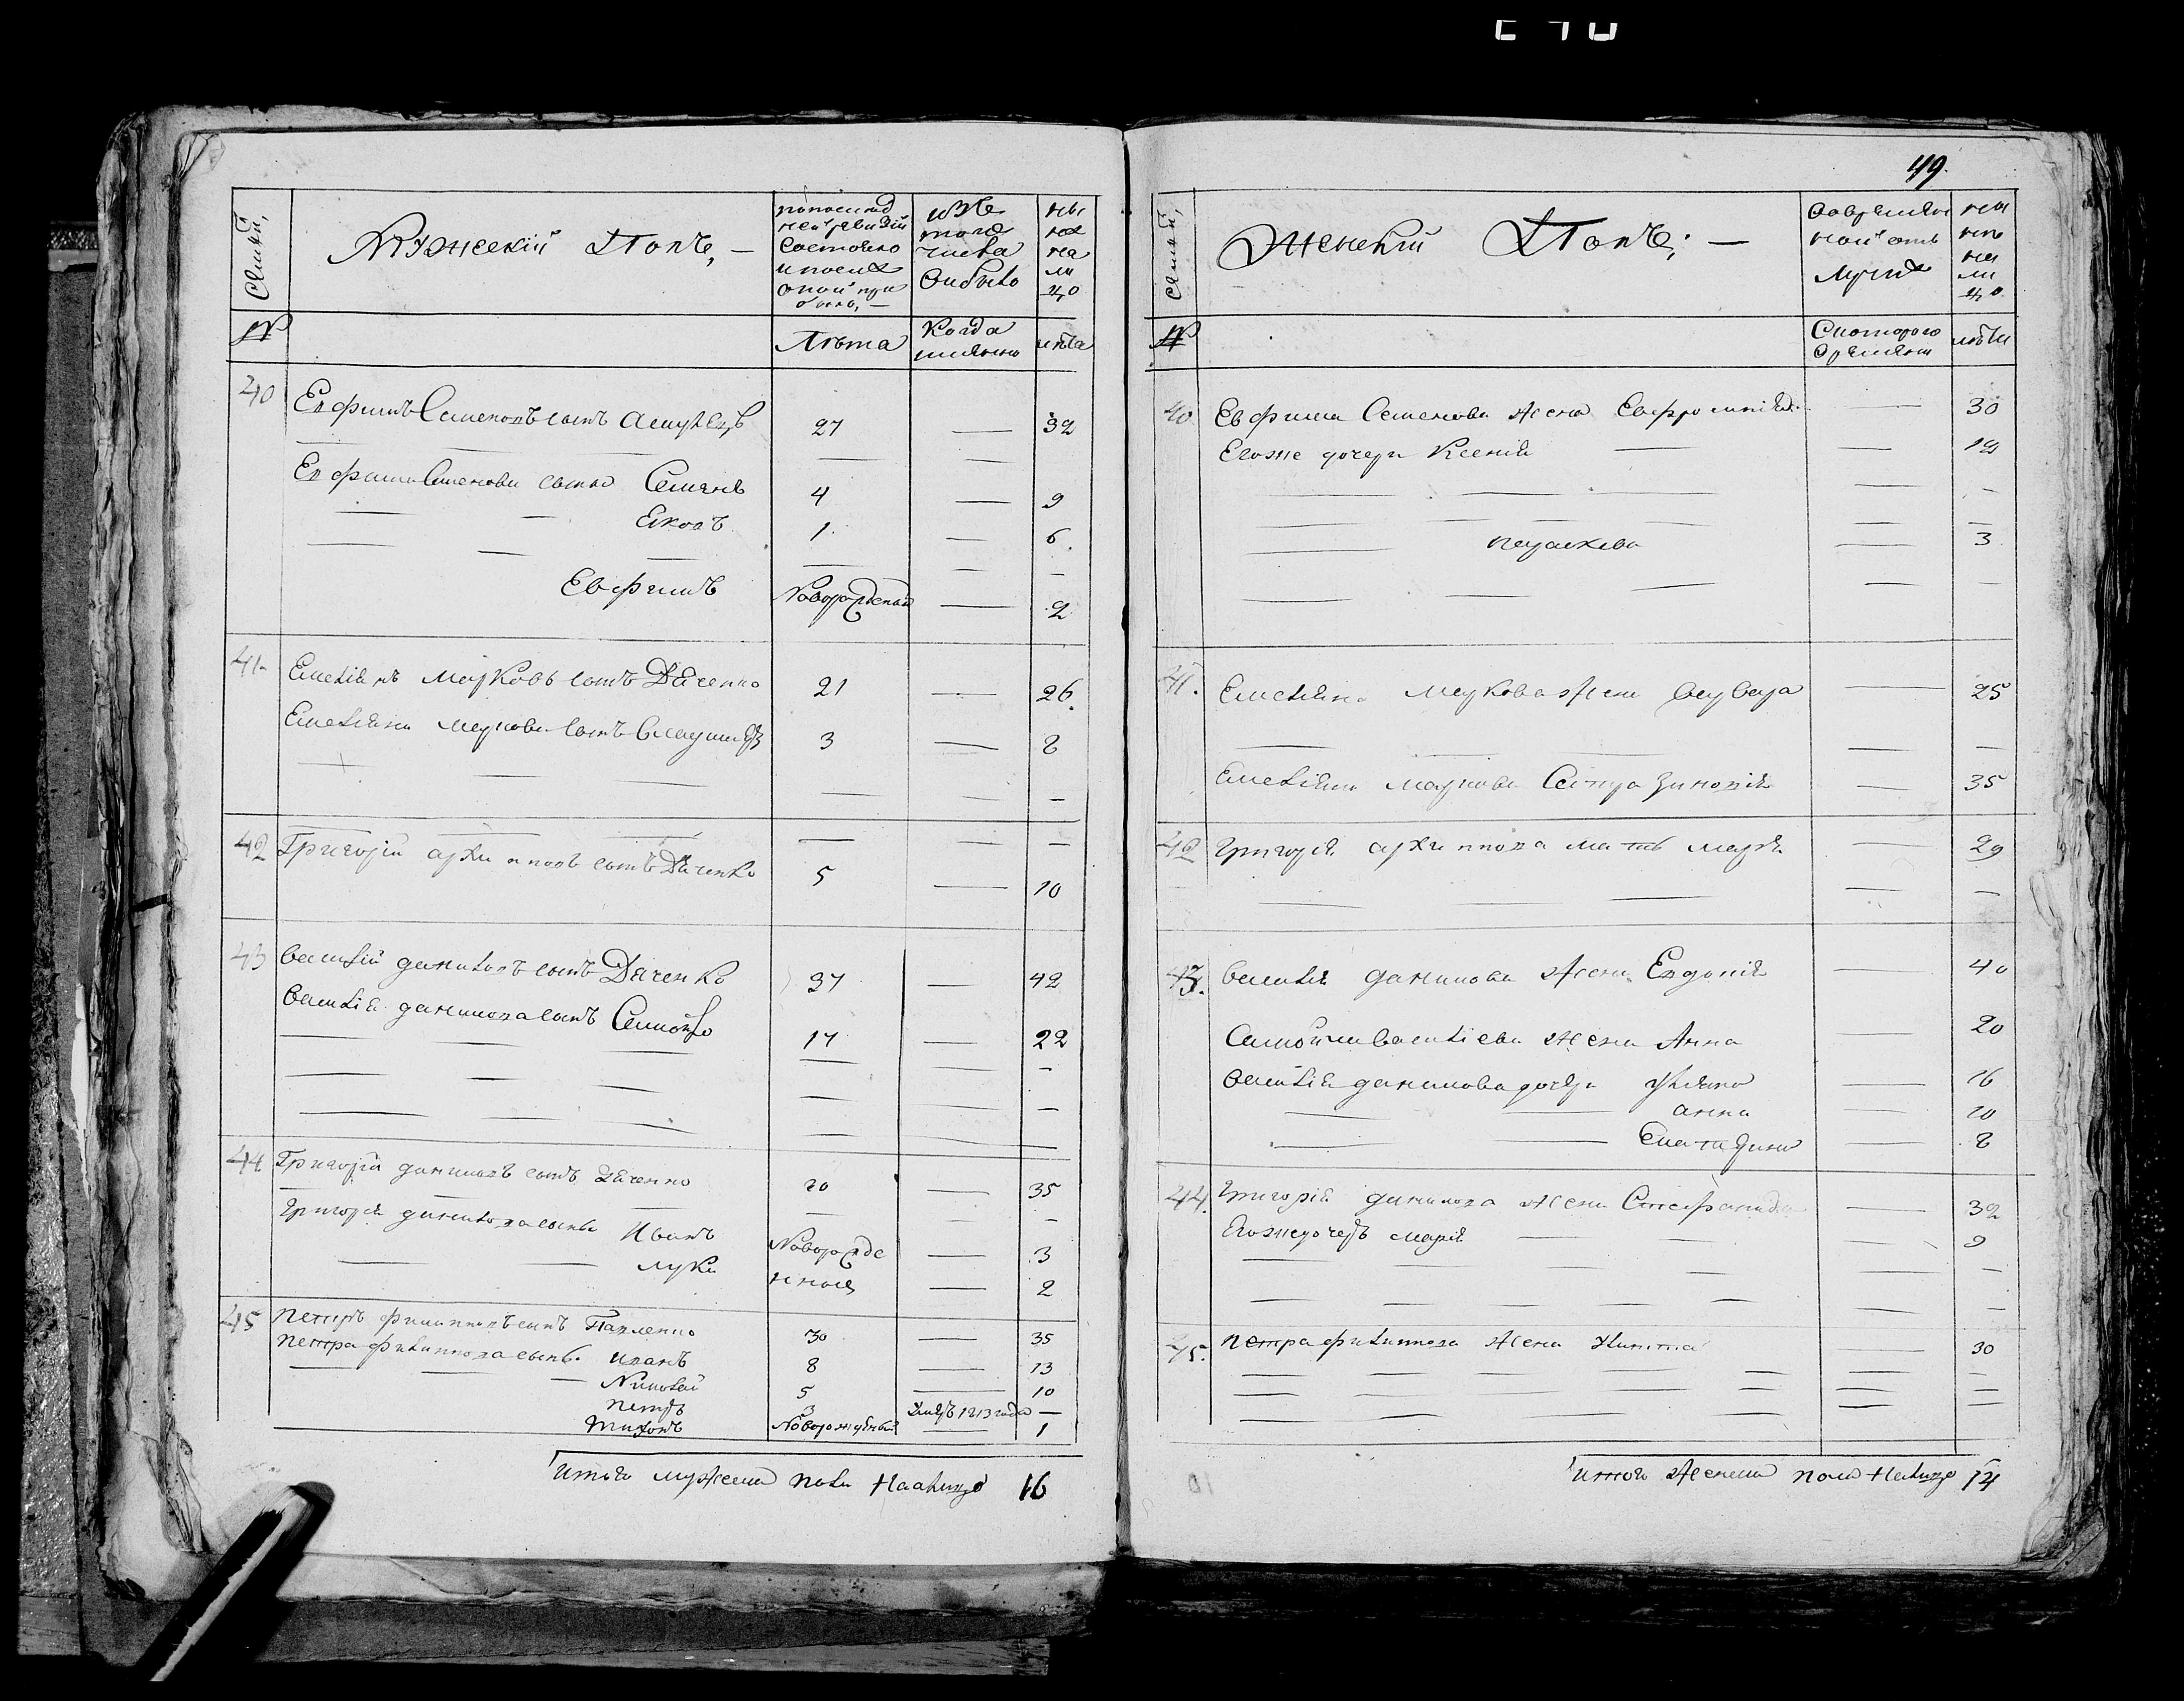 Семьи,
Мужеский Полъ, —
попослед
ней ревизїи
состояло
и после
оной при
было, —
изъ
того
числа
выбыло
ны
не
на
ли
цо
№
Лѣта
Когда
имянно
лѣта
40
Евфимъ Семеновъ сынъ
27 — 32
Евфима Семенова сыны Семенъ
4 — 9
Яковъ
1. — 6.
Евфимъ
Новорожденый — 2
41
Емелїянъ Марковъ сынъ Дяченко
21 — 26.
Емелїяна Маркова сынъ
3 — 8
42
Григорїй Архиповъ сынъ Дяченко
5 — 10
43
Василїй Даниловъ сынъ Дяченко
37 — 42
Василїя Данилова сынъ Самойло
17 — 22
44
Григорїй Даниловъ сынъ Дяченко
— 35
Григорїя Данилова сыны Иванъ
Новорожде — 3
Лука
нныя — 2
45
Петръ Филиповъ сынъ Павленко
30 — 35
Петра Филипова сыны Иванъ
8 — 13
Николай
5 — 10
Петръ
3 Умеръ 1813 года —
Тихонъ
Новорожденый — 1
Итого мужеска пола налицо 16
49.
Семьи,
Женский Полъ; —
вовремян
ной отъ
лучке
ны
не
на
ли
цо
№
Скоторого
времяни
лѣта
40
Евфима Семенова жена Евфросинїя
— 30
Егоже дочери Ксенїя
— 12
Параскева
— 3
41.
Емелїяна Маркова жена Варвара
— 25
Емелїяна Маркова Сестра Зиновїя
— 35
42
Григорїя Архипова мать Марїя
— 29
43.
Василїя Данилова жена Евдокїя
— 40
Самойла Василїева жена Анна
— 20
Василїя Данилова дочери Улїяна
— 16
Анна
— 10
Екатерина
— 8
44.
Григорїя Данилова жена Стефанида
— 32
Егоже дочерь Марїя
— 9
45.
Петра Филипова жена
— 30
Итого женска пола налицо 14